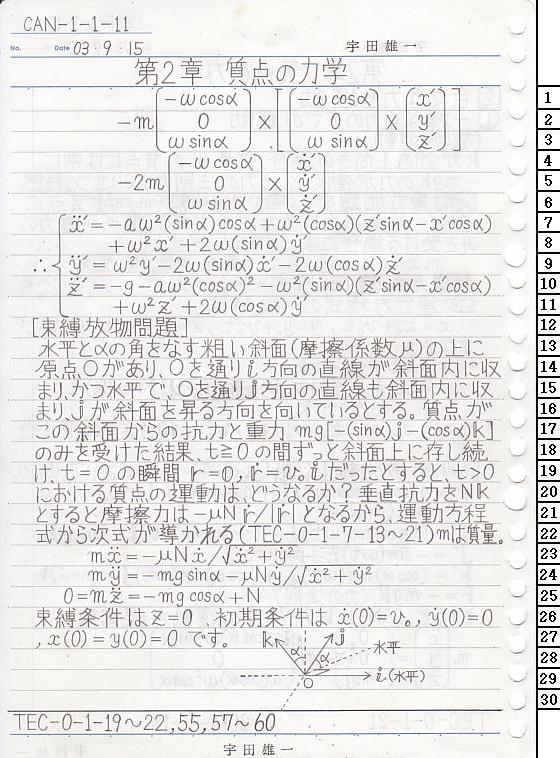 CAN-1-1-11
No. Date 03・9・15 宇田雄一
第2章 質点の力学
-m(-ωcosα 0 ωsinα)×[(-ωcosα 0 ωsinα)×(x′ y′ z′)]
-2m(-ωcosα 0 ωsinα)×(ẋ′ ẏ′ ż′)
∴{ẍ′=-aω²(sinα)cosα+ω²(cosα)(z′sinα-x′cosα)
+ω²x′+2ω(sinα)ẏ′
ÿ′=ω²y′-2ω(sinα)ẋ′-2ω(cosα)ż′
z̈′=-g-aω²(cosα)²-ω²(sinα)(z′sinα-x′cosα)
+ω²z′+2ω(cosα)ẏ′
[束縛放物問題]
水平とαの角をなす粗い斜面(摩擦係数μ)の上に
原点Oがあり、Oを通りi方向の直線が斜面内に収
まり、かつ水平で、Oを通りj方向の直線も斜面内に収
まり、jが斜面を昇る方向を向いているとする。質点が
この斜面からの抗力と重力 mg[-(sinα)j-(cosα)k]
のみを受けた結果、t≧0の間ずっと斜面上に存し続
け、t=0の瞬間 r=0, ṙ=v₀iだったとすると、t>0
における質点の運動は、どうなるか?垂直抗力をNk
とすると摩擦力は-μNṙ/|ṙ|となるから、運動方程
式から次式が導かれる(TEC-0-1-7-13〜21)mは質量。
mẍ=-μNẋ/√ẋ²+ẏ²
mÿ=-mg sinα-μNẏ/√ẋ²+ẏ²
0=mz̈=-mg cosα+N
束縛条件はz=0、初期条件は ẋ(0)=v₀, ẏ(0)=0
, x(0)=y(0)=0 です。
k α j α 水平
O i(水平)
TEC-0-1-19〜22,55,57〜60
宇田雄一
1
2
3
4
5
6
7
8
9
10
11
12
13
14
15
16
17
18
19
20
21
22
23
24
25
26
27
28
29
30